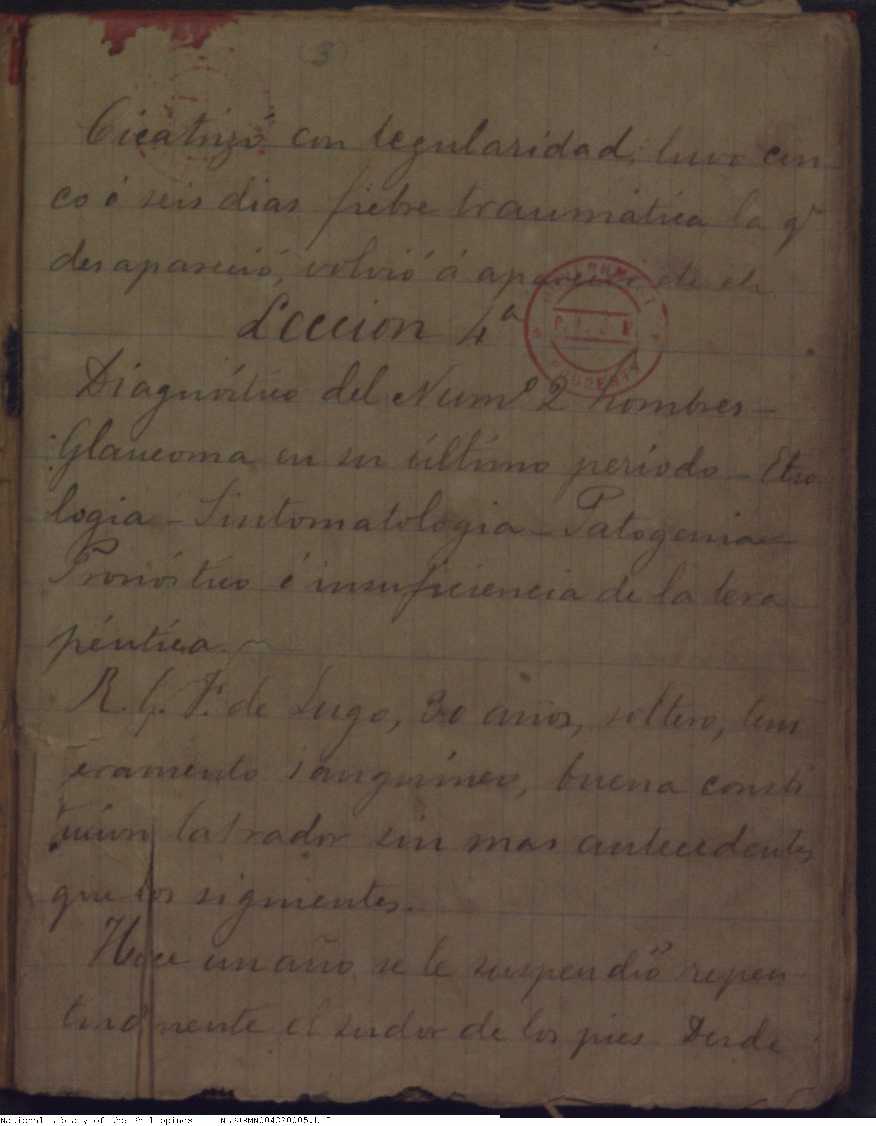 3
Cicatrizó con regularidad, tuvo cin
co ó seis dias fiebre traumática la qᵉ
desapareció, volvió á
Leccion 4ª
Diagnóstico del Numº 2 hombres—
Glaucoma en su último período—Etio
logia—Sintomatologia—Patogenia—
Pronóstico é insuficiencia de la tera
péutica.—
de Lugo, 30 años, soltero, tem
eramento sanguineo, buena consti
labrador sin mas antecedentes
que los siguientes.
Hace un año se le suspendió repen
tinamente el sudor de los pies Desde
National Library of the Philippines